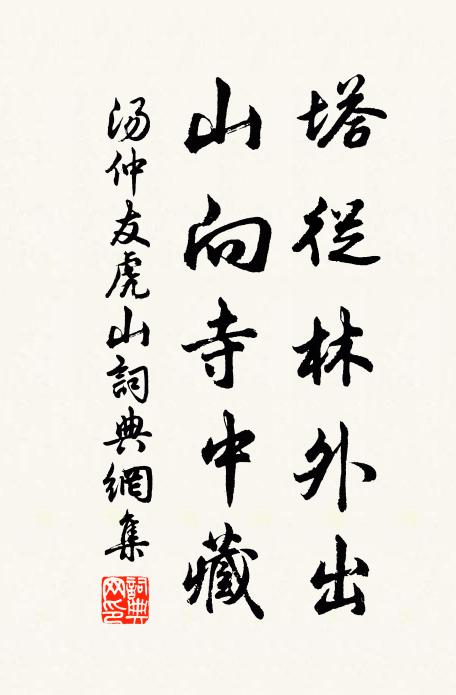 塔從林外出
山向寺中藏
汤仲友虎山詞典網集
詞典網印